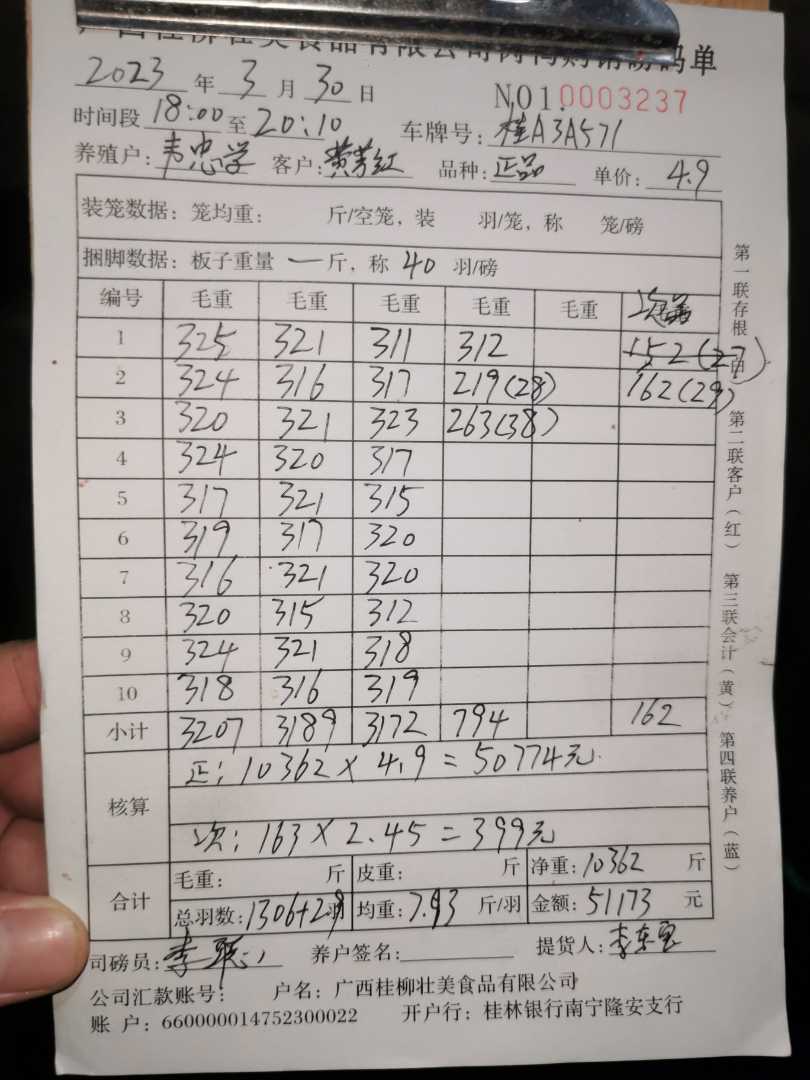 广西桂柳壮美食品有限公司肉鸭购销磅码单
2023 年 3 月 30 日 NO1.0003237
时间段 18:00 至 20:10 车牌号: 桂A3A571
养殖户: 韦忠学 客户: 黄芳红 品种: 正品 单价: 4.9
装笼数据: 笼均重: 斤/空笼, 装 羽/笼, 称 笼/磅
捆脚数据: 板子重量 一 斤, 称 40 羽/磅
编号 毛重 毛重 毛重 毛重 毛重 次品
1 325 321 311 312 152(27)
2 324 316 317 219(28) 162(29)
3 320 321 323 263(38)
4 324 320 317
5 317 321 315
6 319 317 320
7 316 321 320
8 320 315 312
9 324 321 318
10 318 316 319
小计 3207 3189 3172 794 162
核算 正: 10362 × 4.9 = 50774元
次: 163 × 2.45 = 399元
合计 毛重: 斤 皮重: 斤 净重: 10362 斤
总羽数: 1306+29羽 均重: 7.93 斤/羽 金额: 51173 元
司磅员: 李 养户签名: 提货人: 李东
公司汇款账号: 户名: 广西桂柳壮美食品有限公司
账 户: 660000014752300022 开户行: 桂林银行南宁隆安支行
第一联存根(白) 第二联客户(红) 第三联会计(黄) 第四联养户(蓝)